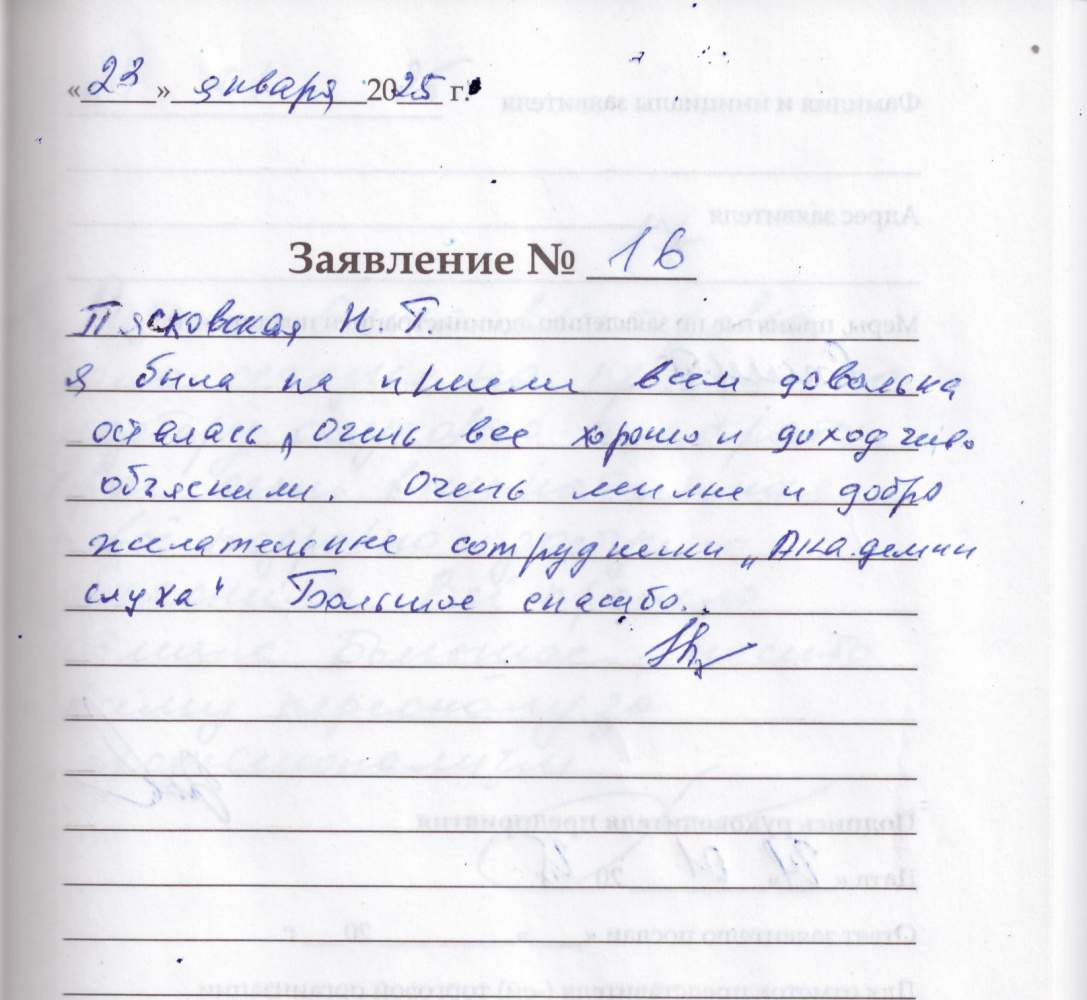 «23» января 2025 г.
Заявление № 16
Пясковская Н. Г.
я была на приеме всем довольна
осталась, очень все хорошо и доходчиво
объяснили. Очень милые и добро
желательные сотрудники „Академии
слуха" Большое спасибо.